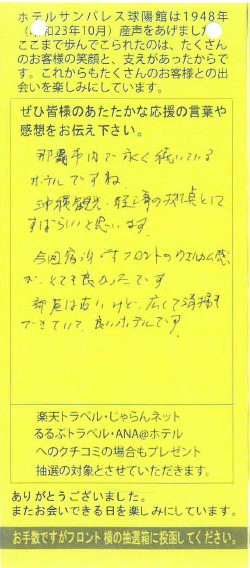 ホテルサンパレス球陽館は1948年
(昭和23年10月)産声をあげました
ここまで歩んでこられたのは、たくさん
のお客様の笑顔と、支えがあったからで
す。これからもたくさんのお客様との出
会いを楽しみにしています。
ぜひ皆様のあたたかな応援の言葉や
感想をお伝え下さい。
那覇市内で永く続いている
ホテルですね
沖縄観光・仕事の拠点として
すばらしいと思います。
今回宿泊 フロントのウェルカム感
が、とても良かったです
部屋は古いけど、広くて清掃も
できていて、良いホテルです。
楽天トラベル・じゃらんネット
るるぶトラベル・ANA@ホテル
へのクチコミの場合もプレゼント
抽選の対象とさせていただきます。
ありがとうございました。
またお会いできる日を楽しみにしています。
お手数ですがフロント横の抽選箱に投函してください。